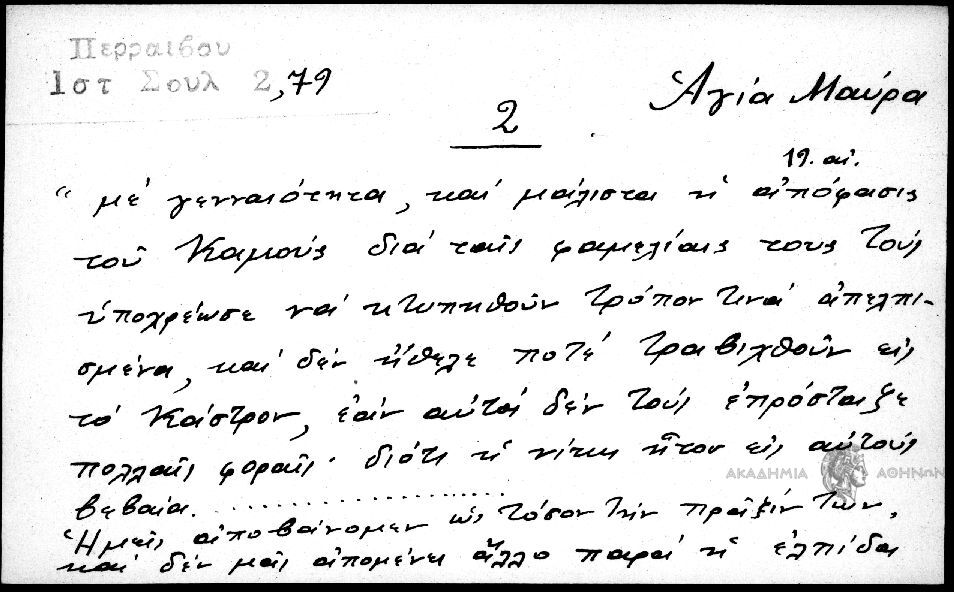 Περραιβου
Ιστ Σουλ 2,79
Ἁγία Μαύρα
2
19. αἰ.
“ μέ γενναιότητα, καί μάλιστα ἡ ἀπόφασις
τοῦ Καμούς διά ταῖς φαμελίαις τους τούς
ὑποχρέωσε νά κτυπηθοῦν τρόπον τινά ἀπελπι-
σμένα, καί δέν ἤθελε ποτέ τραβιχθοῦν εἰς
τό Κάστρον, ἐάν αὐτός δέν τούς ἐπρόσταξε
πολλαῖς φοραῖς· διότι ἡ νίκη ἦτον εἰς αὐτούς
βεβαία. . . . . . . . . . . . . . . . . . . . . .
Ἡμεῖς ἀποβαίνομεν ὡς τόσον τήν πρᾶξίν των,
καί δέν μᾶς ἀπομένει ἄλλο παρά ἡ ἐλπίδα
ΑΚΑΔΗΜΙΑ ΑΘΗΝΩΝ